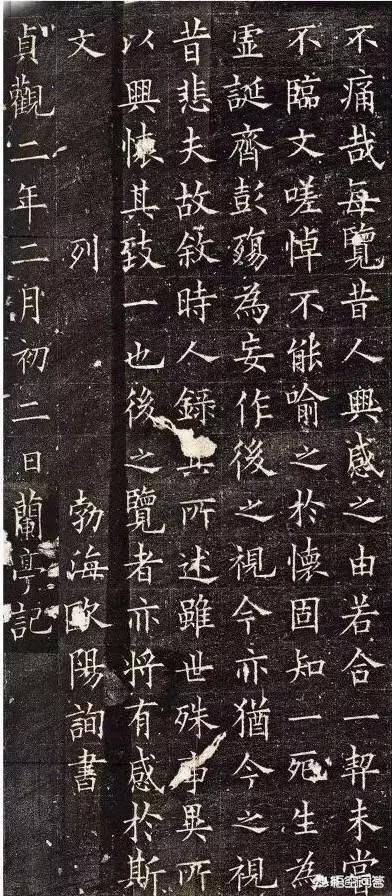 不痛哉每覽昔人興感之由若合一契未嘗
不臨文嗟悼不能喻之於懷固知一死生為
虛誕齊彭殤為妄作後之視今亦猶今之視
昔悲夫故敘時人錄其所述雖世殊事異所
以興懷其致一也後之覽者亦將有感於斯
文 列 勃海歐陽詢書
貞觀二年二月初二日蘭亭記
悟空问答